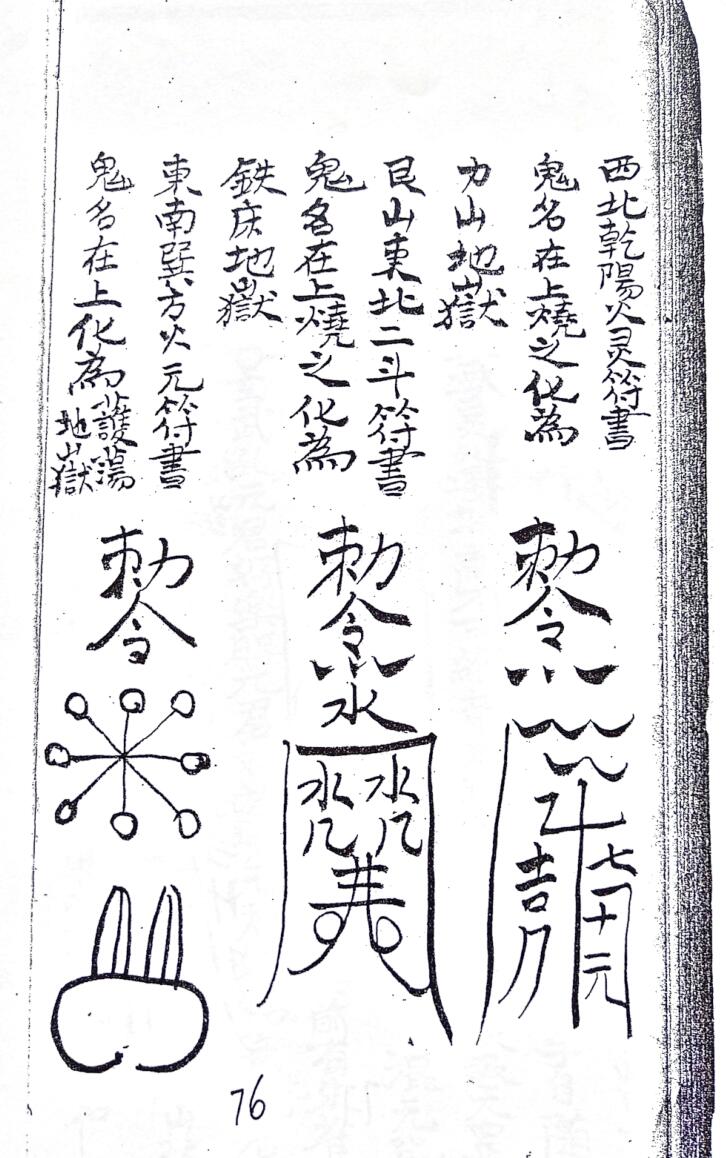 西北乾陽火灵符書
鬼名在上燒之化為
力山地獄
艮山東北二斗符書
鬼名在上燒之化為
鉄床地獄
東南巽方火元符書
鬼名在上化為護蕩地獄
勅令
七十元
吉
勅令
水
水 水
井
勅令
76